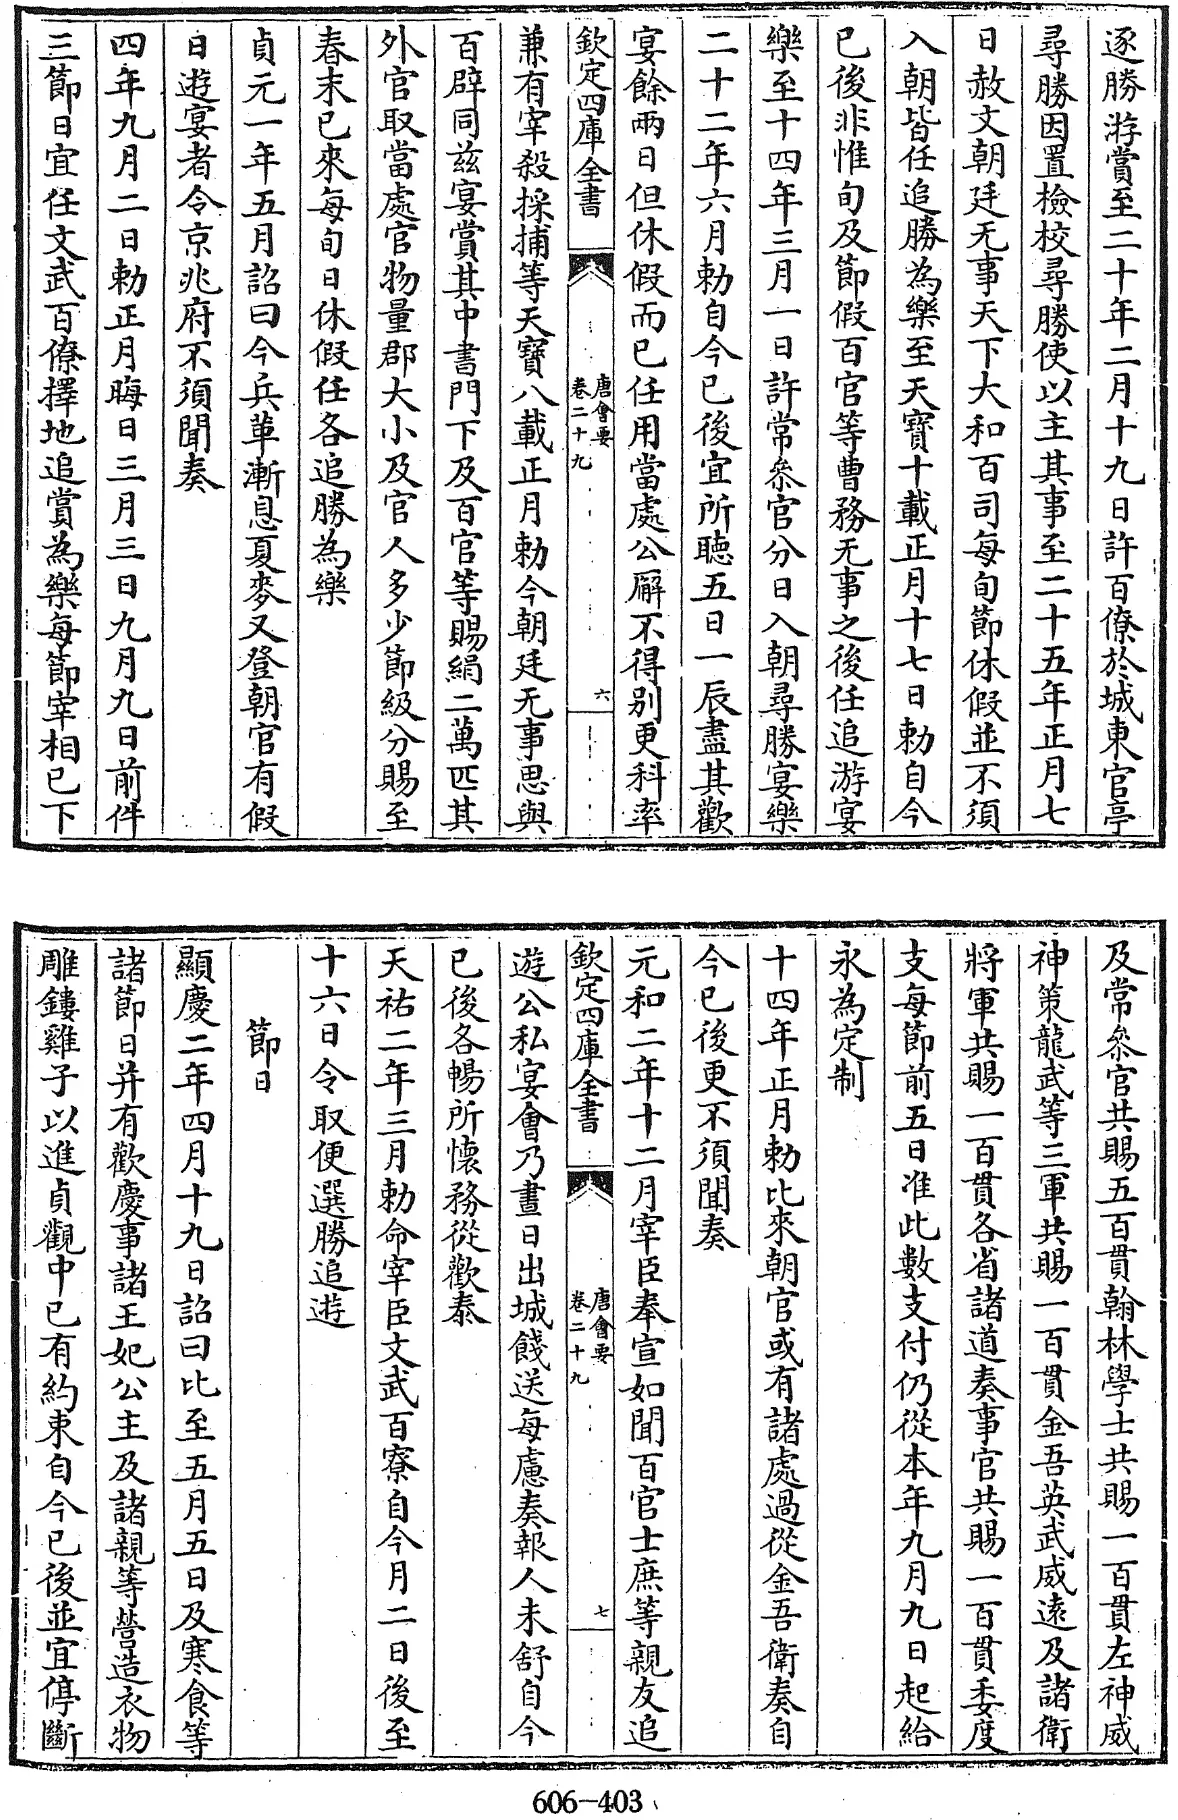 逐勝游賞至二十年二月十九日許百僚於城東官亭
尋勝因置檢校尋勝使以主其事至二十五年正月七
日赦文朝廷无事天下大和百司每旬節休假並不須
入朝皆任追勝為樂至天寶十載正月十七日勅自今
已後非惟旬及節假百官等曹務无事之後任追游宴
樂至十四年三月一日許常叅官分日入朝尋勝宴樂
二十二年六月勅自今已後宜所聽五日一辰盡其歡
宴餘兩日但休假而已任用當處公廨不得別更科率
欽定四庫全書
唐會要
卷二十九
六
兼有宰殺採捕等天寶八載正月勅今朝廷无事思與
百辟同兹宴賞其中書門下及百官等賜絹二萬匹其
外官取當處官物量郡大小及官人多少節級分賜至
春末已來每旬日休假任各追勝為樂
貞元一年五月詔曰今兵革漸息夏麥又登朝官有假
日遊宴者令京兆府不須聞奏
四年九月二日勅正月晦日三月三日九月九日前件
三節日宜任文武百僚擇地追賞為樂每節宰相已下
及常叅官共賜五百貫翰林學士共賜一百貫左神威
神策龍武等三軍共賜一百貫金吾英武威遠及諸衛
將軍共賜一百貫各省諸道奏事官共賜一百貫委度
支每節前五日准此數支付仍從本年九月九日起給
永為定制
十四年正月勅比來朝官或有諸處過從金吾衛奏自
今已後更不須聞奏
元和二年十二月宰臣奉宣如聞百官士庶等親友追
欽定四庫全書
唐會要
卷二十九
七
遊公私宴會乃晝日出城餞送每慮奏報人未舒自今
已後各暢所懷務從歡泰
天祐二年三月勅命宰臣文武百寮自今月二日後至
十六日令取便選勝追遊
節日
顯慶二年四月十九日詔曰比至五月五日及寒食等
諸節日并有歡慶事諸王妃公主及諸親等營造衣物
雕鏤雞子以進貞觀中已有約束自今已後並宜停斷
606-403